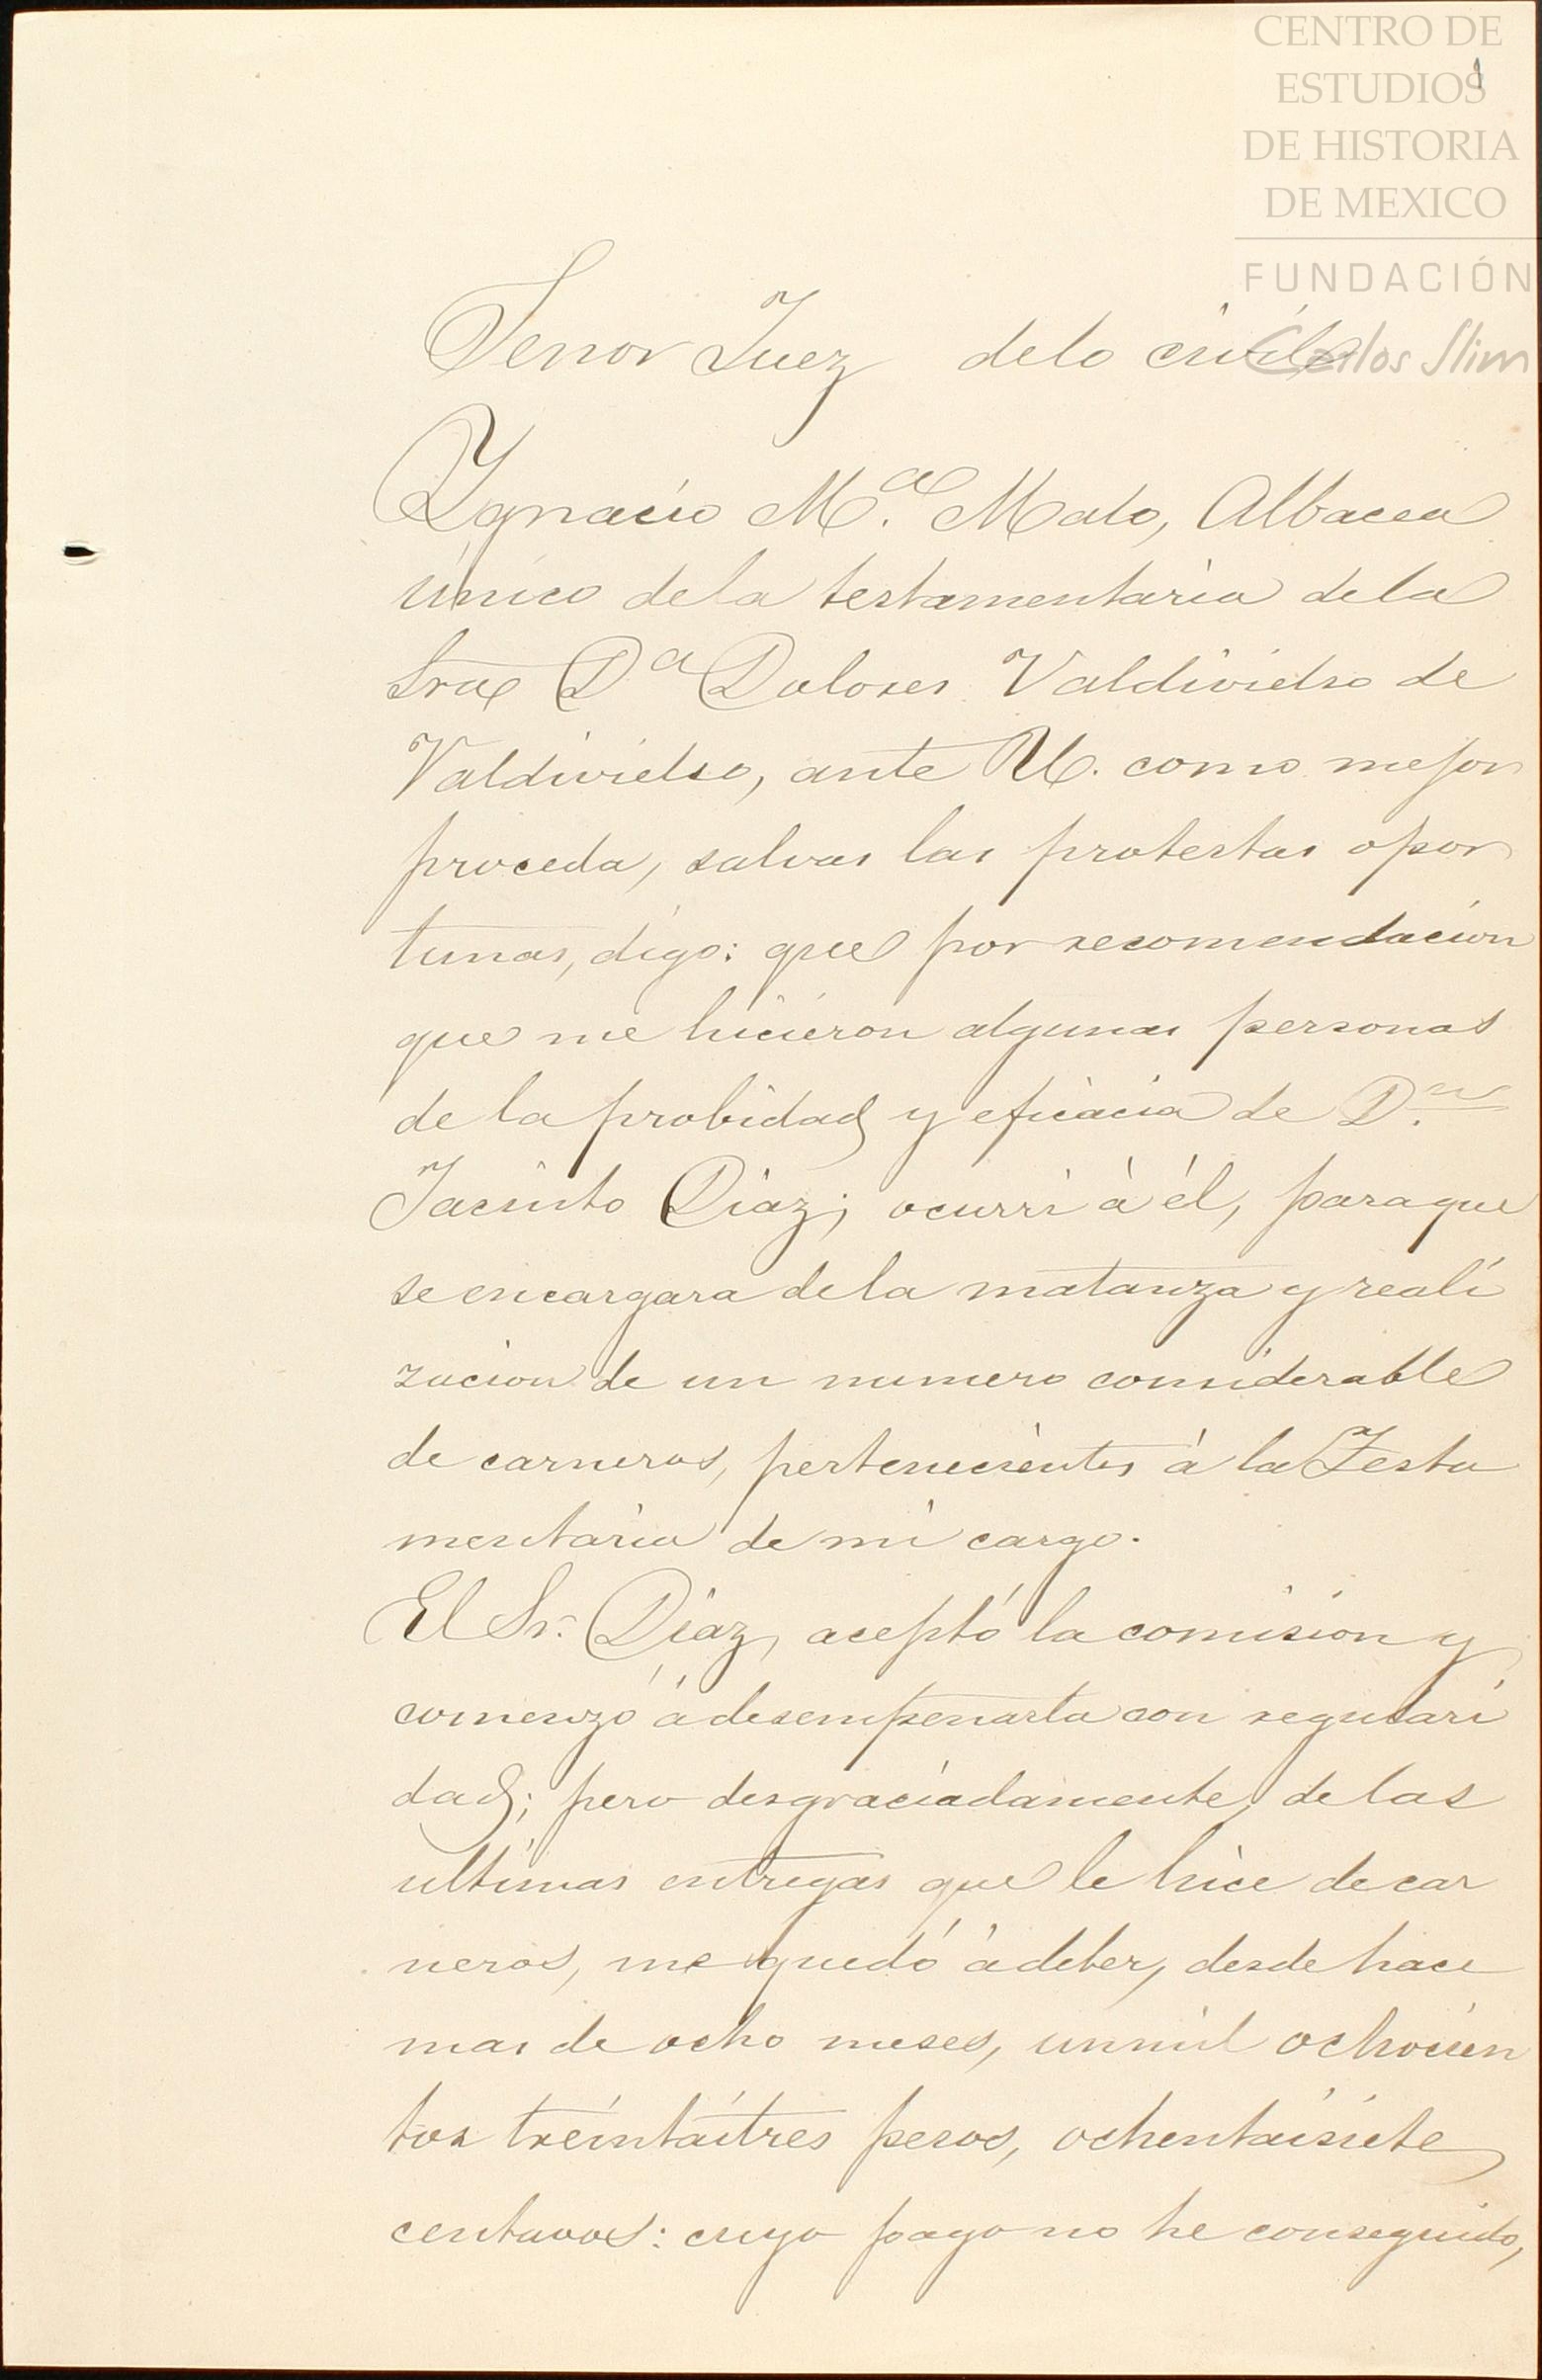 CENTRO DE
ESTUDIOS
DE HISTORIA
DE MEXICO
FUNDACIÓN
Carlos Slim
1
Senor Juez delo civil
Ygnacio M.ª Malo, Albacea
único dela testamentaria dela
Sra Dª Dolores Valdivielso de
Valdivielso, ante U. como mejor
proceda, salvas las protestas opor
tunas, digo: que por recomendacion
que me hicieron algunas personas
de la probidad y eficacia de D.n
Jacinto Diaz; ocurri à él, paraque
se encargara dela matanza y reali
zacion de un numero considerable
de carneros, pertenecientes à la Testa
mentaria de mi cargo.
El Sr. Diaz, aceptó la comision y
comenzó á desempenarla con regulari
dad; pero desgraciadamente, de las
ultimas entregas que le hice de car
neros, me quedó à deber, desde hace
mas de ocho meses, unmil ochocien
tos treintaitres pesos, ochentaisiete
centavos: cuyo pago no he conseguido,